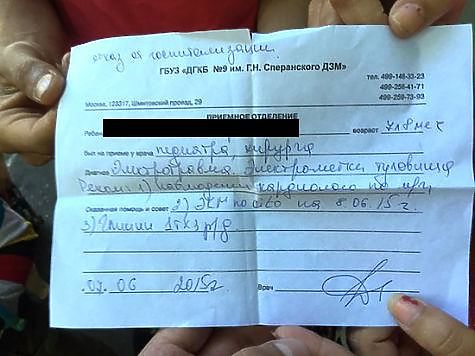 отказ от госпитализации
ГБУЗ «ДГКБ №9 им. Г.Н. Сперанского ДЗМ»
тел. 499-148-33-23
499-256-41-71
499-259-73-93
Москва, 123317, Шмитовский проезд, 29
ПРИЕМНОЕ ОТДЕЛЕНИЕ
Ребен возраст 7л8мес
Был на приеме у врача педиатра, хирурга
Диагноз Электротравма. Электрометки туловища
Реком: 1) наблюдение кардиолога по м/ж,
Оказанная помощь и совет 2) ЭКГ на 8.06.15г.
3) 1т х 3 р/д.
07.06 2015г Врач